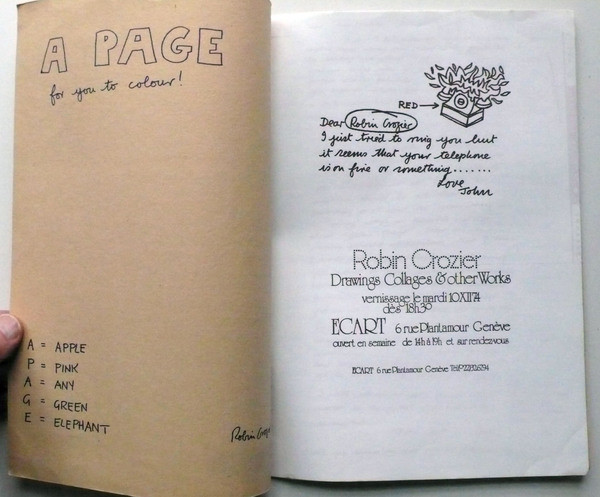 A PAGE
for you to colour!
A = APPLE
P = PINK
A = ANY
G = GREEN
E = ELEPHANT
RED →
Dear Robin Crozier
I just tried to ring you but
it seems that your telephone
is on fire or something.......
Love
John
Robin Crozier
Drawings Collages & other Works
vernissage le mardi 10 XII 74
dès 18h30
ECART 6 rue Plantamour Genève
ouvert en semaine de 14h à 19h et sur rendez-vous
ECART 6 rue Plantamour Genève